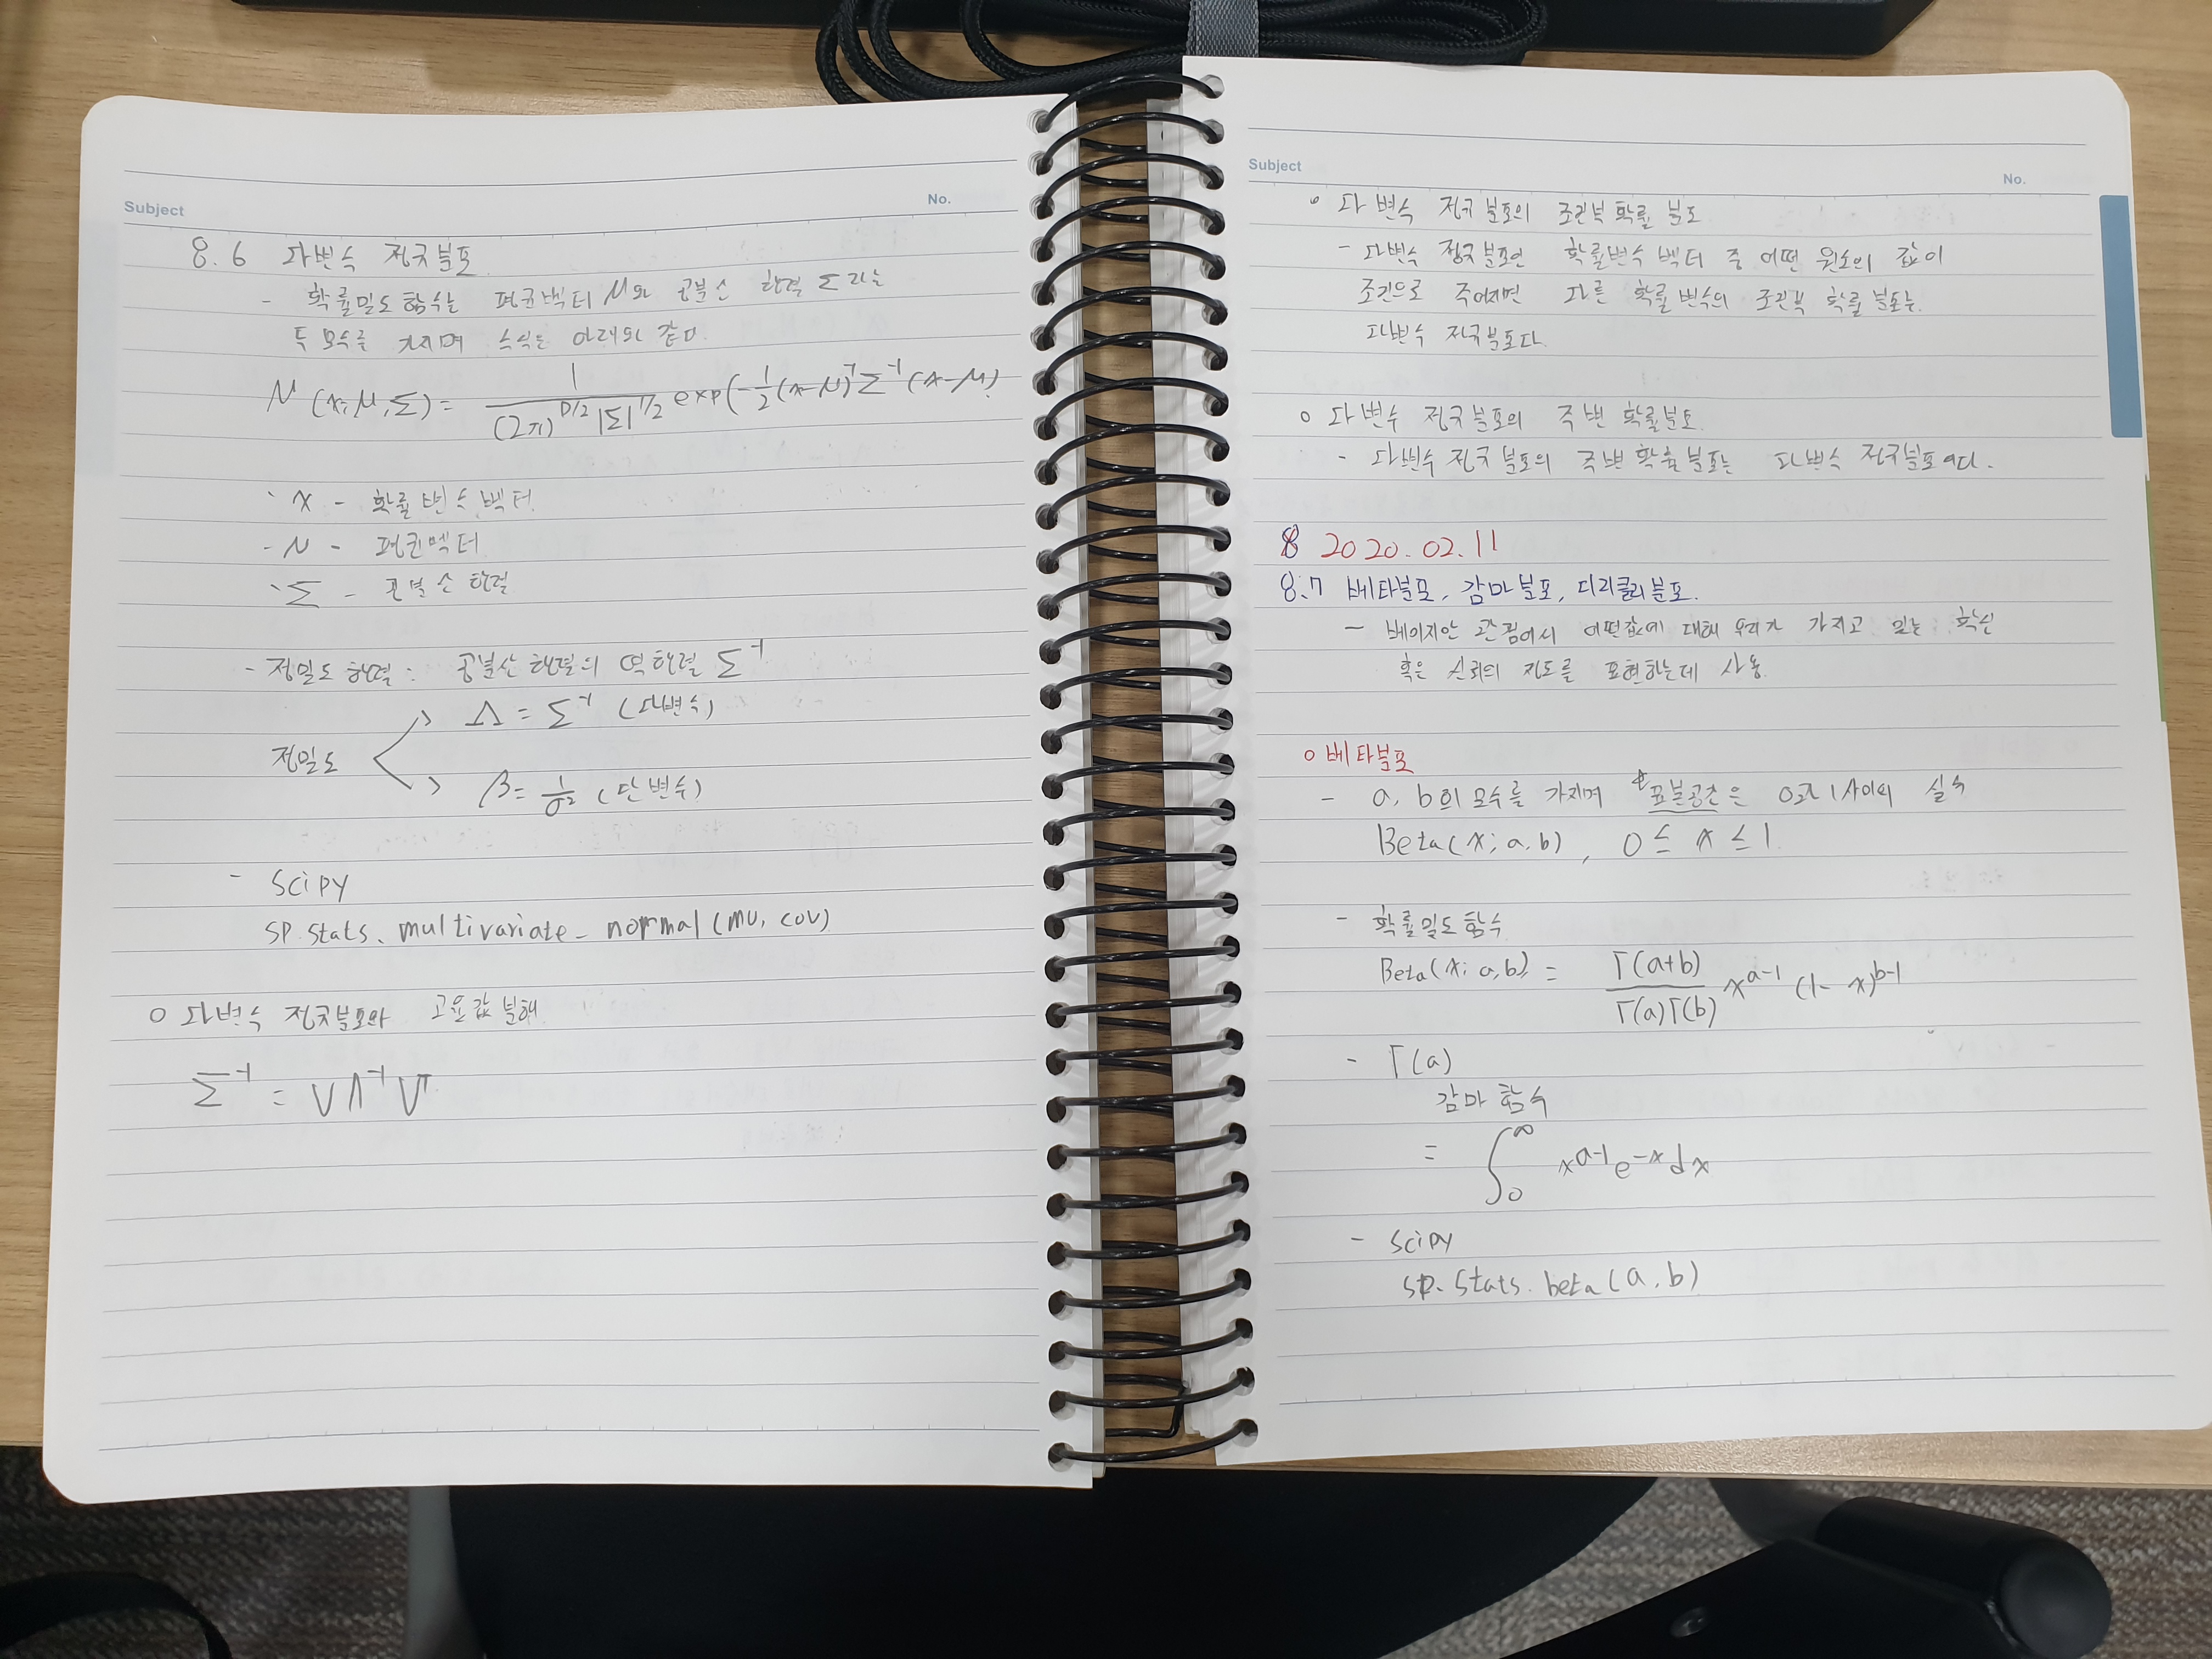 Subject
No.
8.6 다변수 정규분포
- 확률밀도함수는 평균벡터 μ와 공분산 행렬 Σ라는
두 모수를 가지며 수식은 아래와 같다.
N(x; μ, Σ) = 1 / (2π)^D/2 |Σ|^1/2 exp(-1/2 (x-μ)^T Σ^-1 (x-μ)
· x - 확률변수벡터
- μ - 평균벡터
· Σ - 공분산 행렬
- 정밀도 행렬 : 공분산 행렬의 역행렬 Σ^-1
Λ = Σ^-1 (다변수)
정밀도
β = 1/σ^2 (단변수)
- Scipy
SP. Stats. multivariate_normal (mu, cov)
o 다변수 정규분포와 고윳값 분해
Σ^-1 = V Λ^-1 V^T
Subject
No.
o 다변수 정규분포의 조건부 확률 분포
- 다변수 정규분포인 확률변수 벡터 중 어떤 원소의 값이
조건으로 주어지면 다른 확률 변수의 조건부 확률 분포는
다변수 정규분포다.
o 다변수 정규분포의 주변 확률분포.
- 다변수 정규분포의 주변확률분포는 다변수 정규분포이다.
2020.02.11
8.7 베타분포, 감마분포, 디리클리분포.
- 베이지안 관점에서 어떤값에 대해 우리가 가지고 있는 확신
혹은 신뢰의 정도를 표현하는데 사용.
o 베타분포
- a, b의 모수를 가지며 *표본공간은 0과 1사이의 실수
Beta(x; a, b), 0 ≤ x ≤ 1.
- 확률밀도 함수
Beta(x; a,b) = Γ(a+b) / Γ(a)Γ(b) x^a-1 (1-x)^b-1
- Γ(a)
감마 함수
= ∫_0^∞ x^a-1 e^-x dx
- Scipy
SP. Stats. beta (a, b)